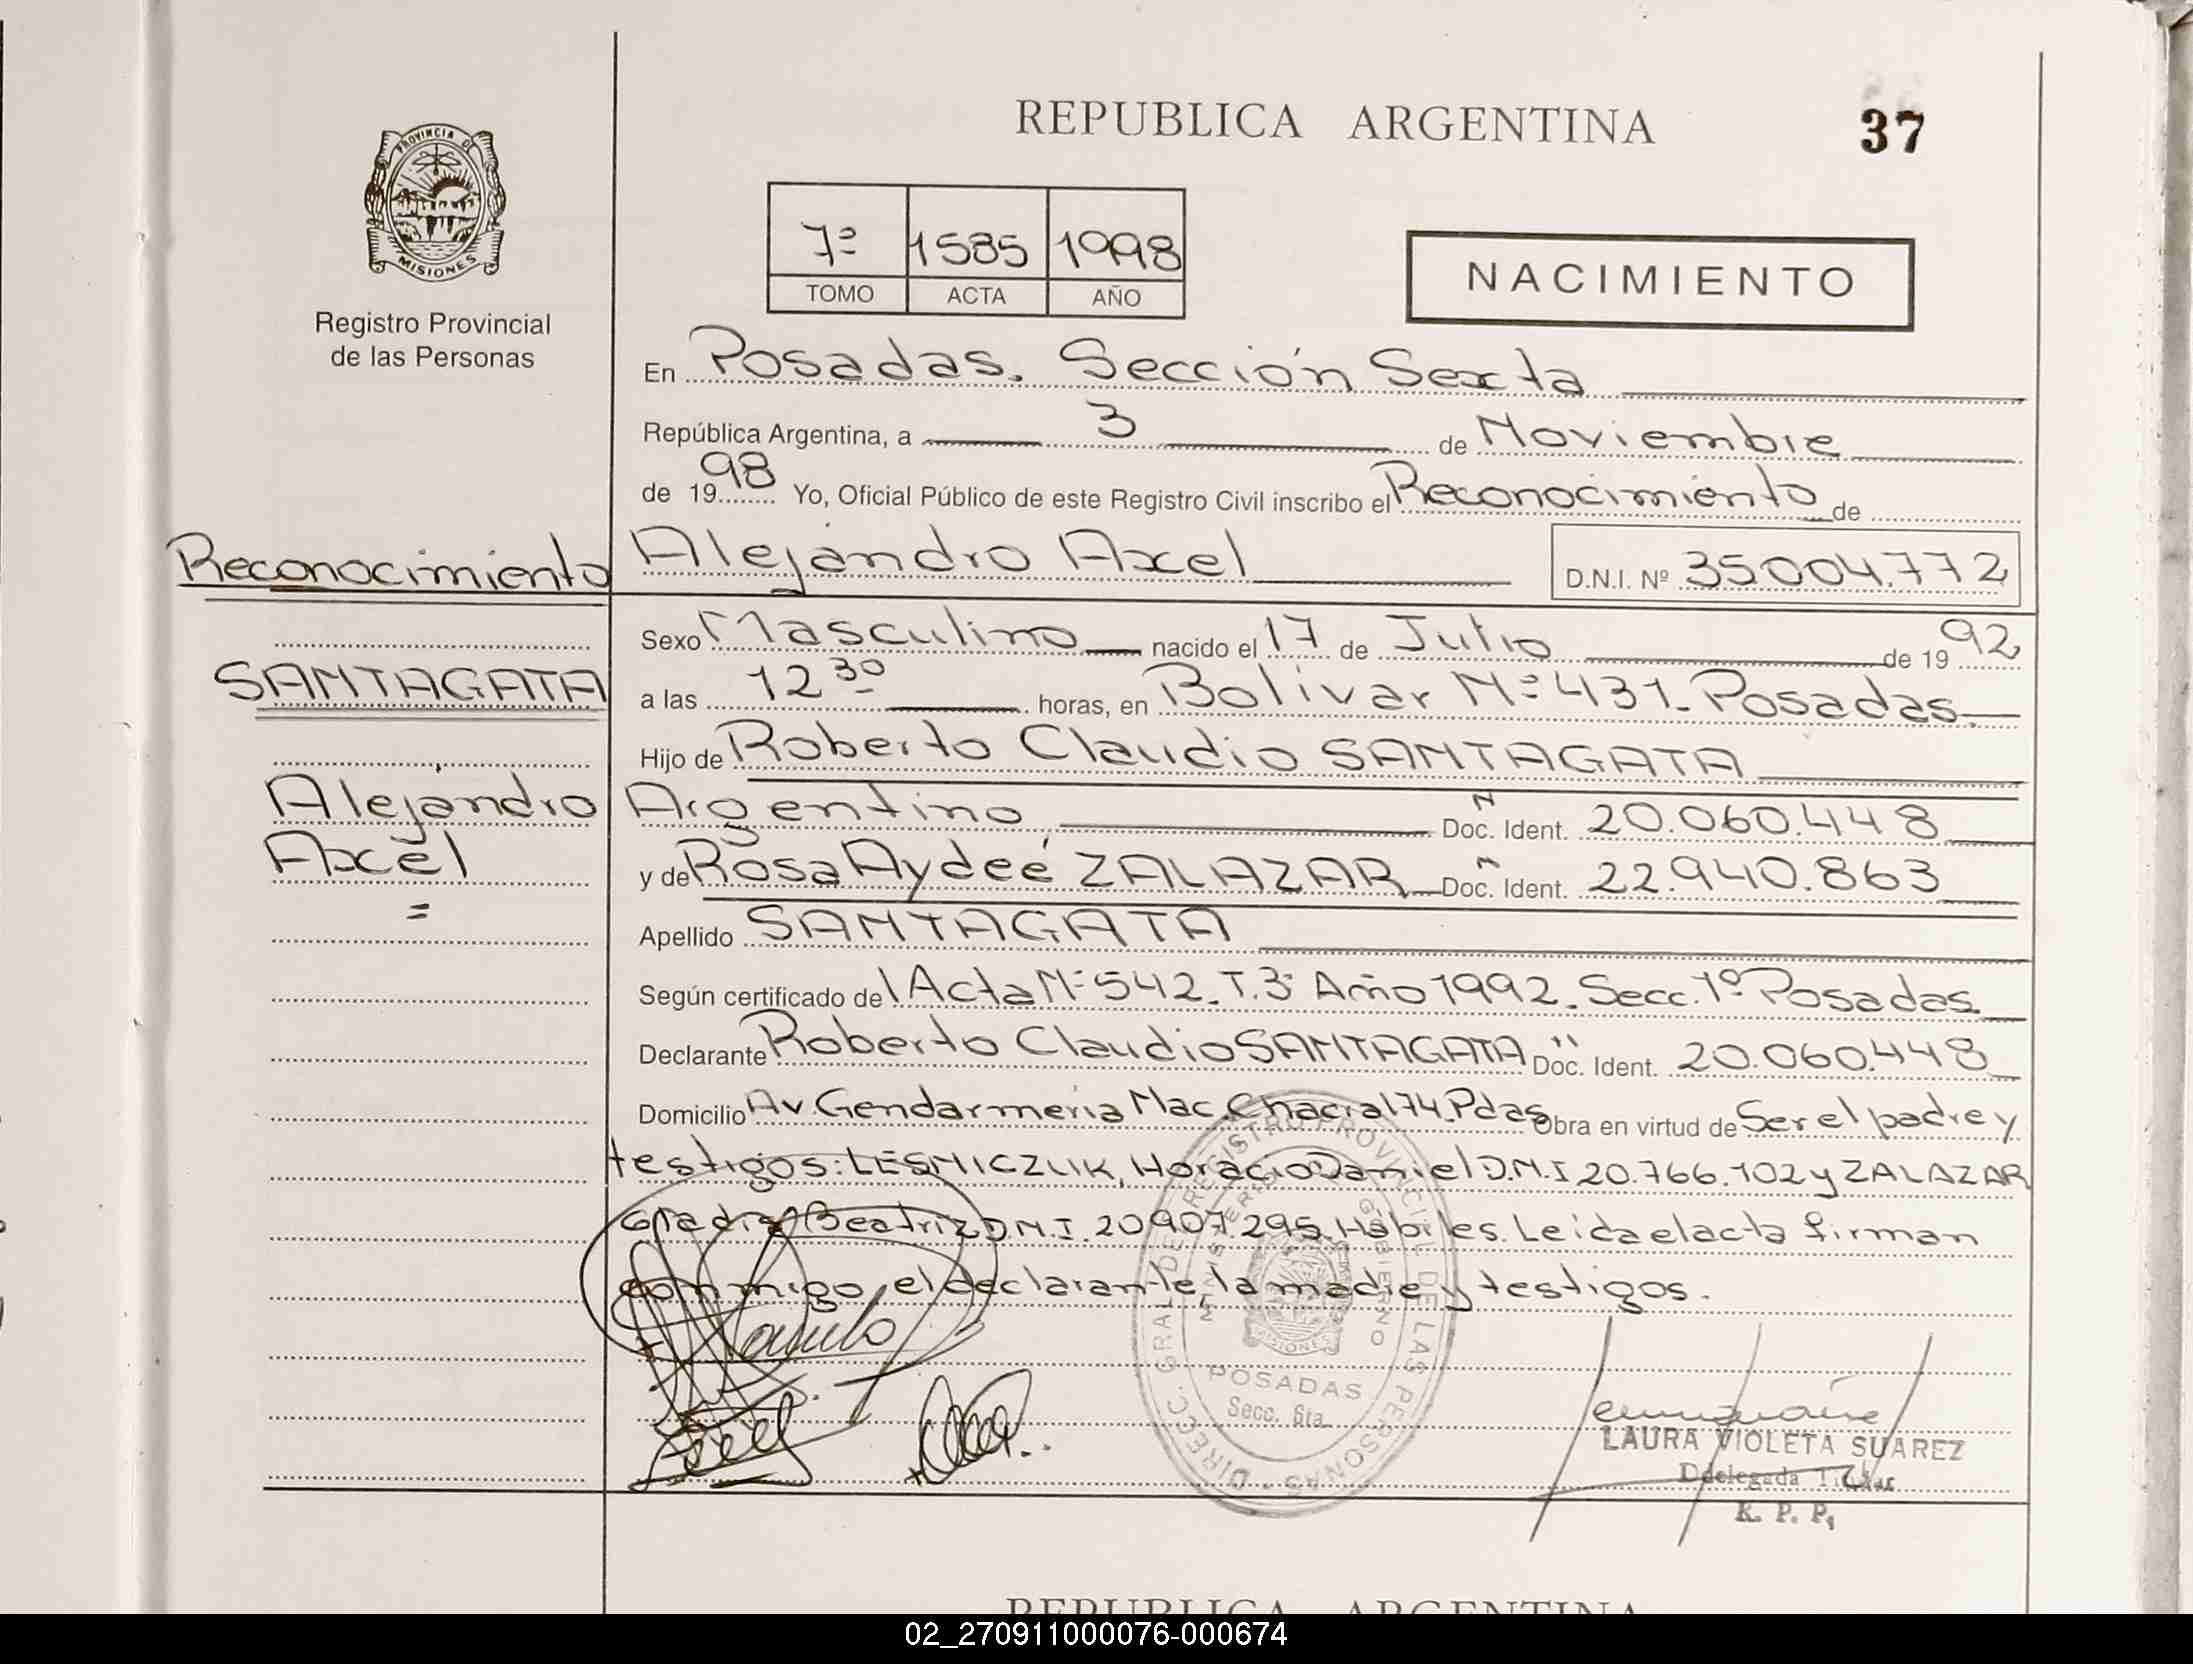 REPUBLICA ARGENTINA
37
PROVINCIA DE
MISIONES
Registro Provincial
de las Personas
7º 1585 1998
TOMO ACTA AÑO
NACIMIENTO
En Posadas. Sección Sexta
República Argentina, a 3 de Noviembre
de 1998 Yo, Oficial Público de este Registro Civil inscribo el Reconocimiento de
Reconocimiento
Alejandro Axel D.N.I. Nº 35004.772
Sexo Masculino nacido el 17 de Julio de 1992
SANTAGATA
a las 12 30 horas, en Bolivar Nº 431. Posadas.
Hijo de Roberto Claudio SANTAGATA
Alejandro
Axel
Argentino Doc. Ident. 20.060.448
y de Rosa Aydeé ZALAZAR Doc. Ident. 22.940.863
Apellido SANTAGATA
Según certificado del Acta Nº 542. T. 3º Año 1992. Secc. 1º Posadas
Declarante Roberto Claudio SANTAGATA Doc. Ident. 20.060.448
Domicilio Av. Gendarmeria Nac. Chacra 174. Pdas Obra en virtud de Ser el padre y
testigos: LESNICZUK, Horacio Daniel D.N.I 20.766.102 y ZALAZAR
Gladis Beatriz D.N.I. 20907.295. Hábiles. Leida el acta firman
conmigo, el declarante, la madre y testigos.
DIRECC. GRAL. DE REGISTRO PROVINCIAL DE LAS PERSONAS
MINISTERIO GOBIERNO
MISIONES
POSADAS
Secc. 6ta.
LAURA VIOLETA SUAREZ
Delegada Titular
R. P. P.
REPUBLICA ARGENTINA
02_270911000076-000674